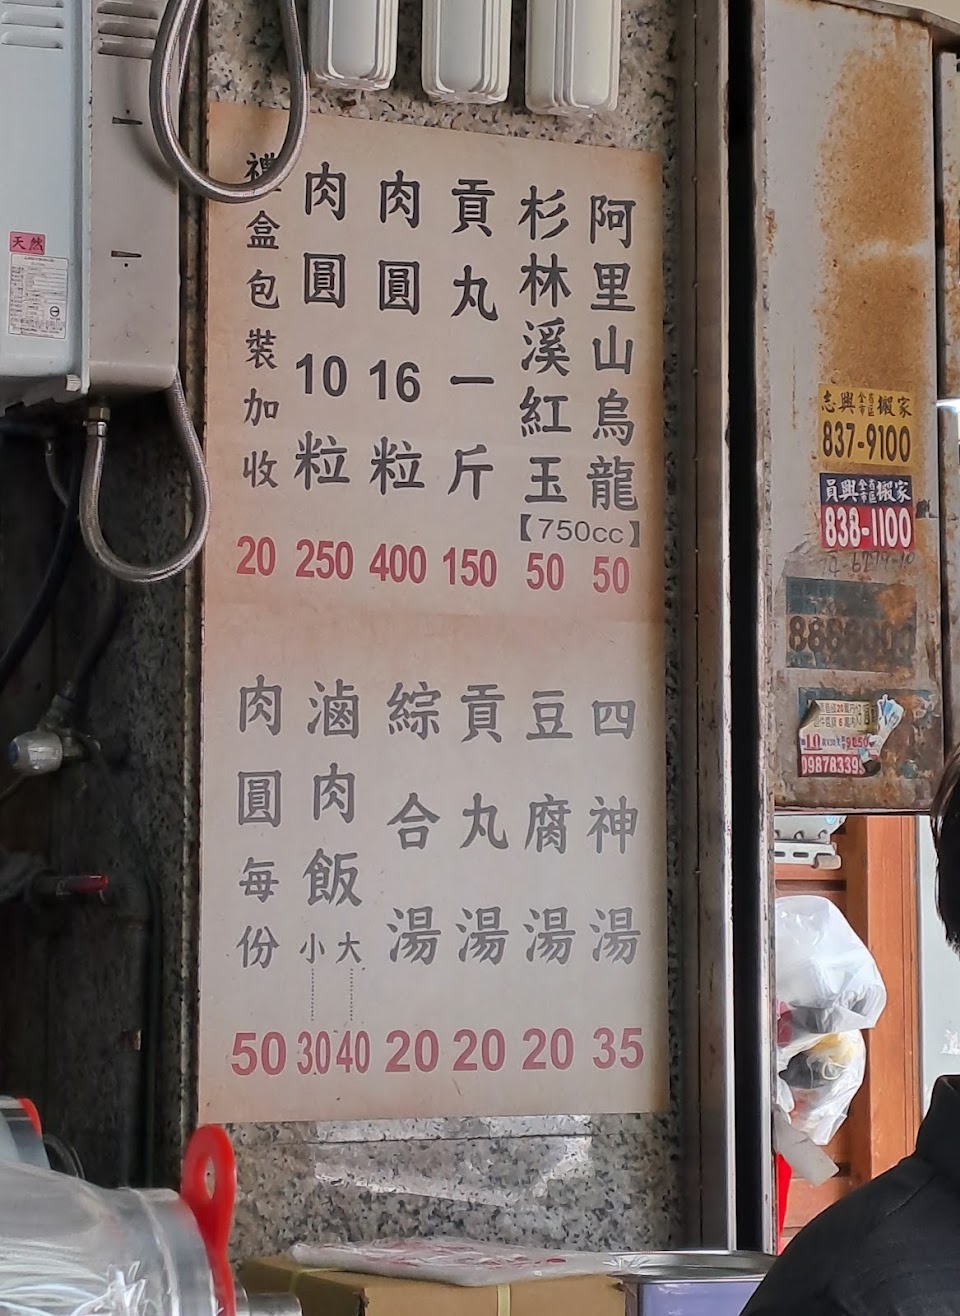 阿里山烏龍
杉林溪紅玉
【750cc】
50
50
貢丸一斤
150
肉圓16粒
400
肉圓10粒
250
禮盒包裝加收
20
四神湯
35
豆腐湯
20
貢丸湯
20
綜合湯
20
滷肉飯
大 40
小 30
肉圓每份
50
天然
志興全省市區搬家
837-9100
員興全省市區搬家
838-1100